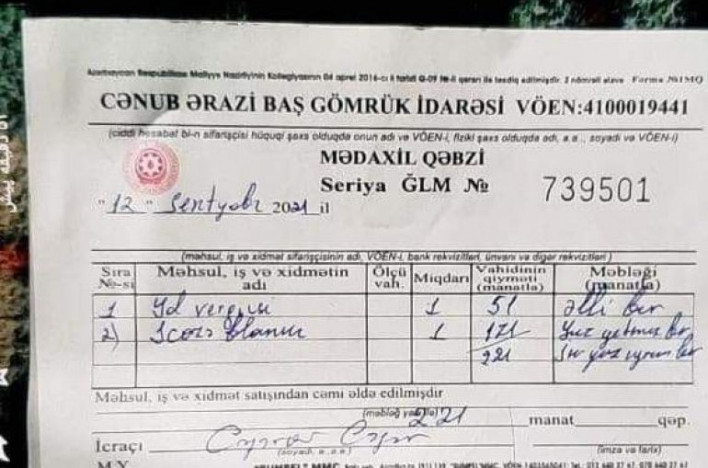 Azərbaycan Respublikası Maliyyə Nazirliyinin Kollegiyasının 04 aprel 2016-cı il tarixli Q-09 №-li qərarı ilə təsdiq edilmişdir. 2 nömrəli əlavə Forma №1MQ
CƏNUB ƏRAZİ BAŞ GÖMRÜK İDARƏSİ VÖEN:4100019441
(ciddi hesabat bl-n sifarişçisi hüquqi şəxs olduqda onun adı və VÖEN-i, fiziki şəxs olduqda adı, a.a., soyadı və VÖEN-i)
MƏDAXİL QƏBZİ
Seriya ĞLM № 739501
"12" Sentyabr 2021 il
(məhsul, iş və xidmət sifarişçisinin adı, VÖEN-i, bank rekvizitləri, ünvanı və digər rekvizitləri)
Sıra №-si Məhsul, iş və xidmətin adı Ölçü vah. Miqdarı Vahidinin qiyməti (manatla) Məbləği (manatla)
1 Yol vergisi 1 51 Əlli bir
2) İcazə blankı 1 171 Yüz yetmiş bir
221 İki yüz iyirmi bir
Məhsul, iş və xidmət satışından cəmi əldə edilmişdir
221 manat qəp.
(məbləğ yazı ilə)
İcraçı
(soyadı, a.a.a) (imza və tarix)
M.Y.